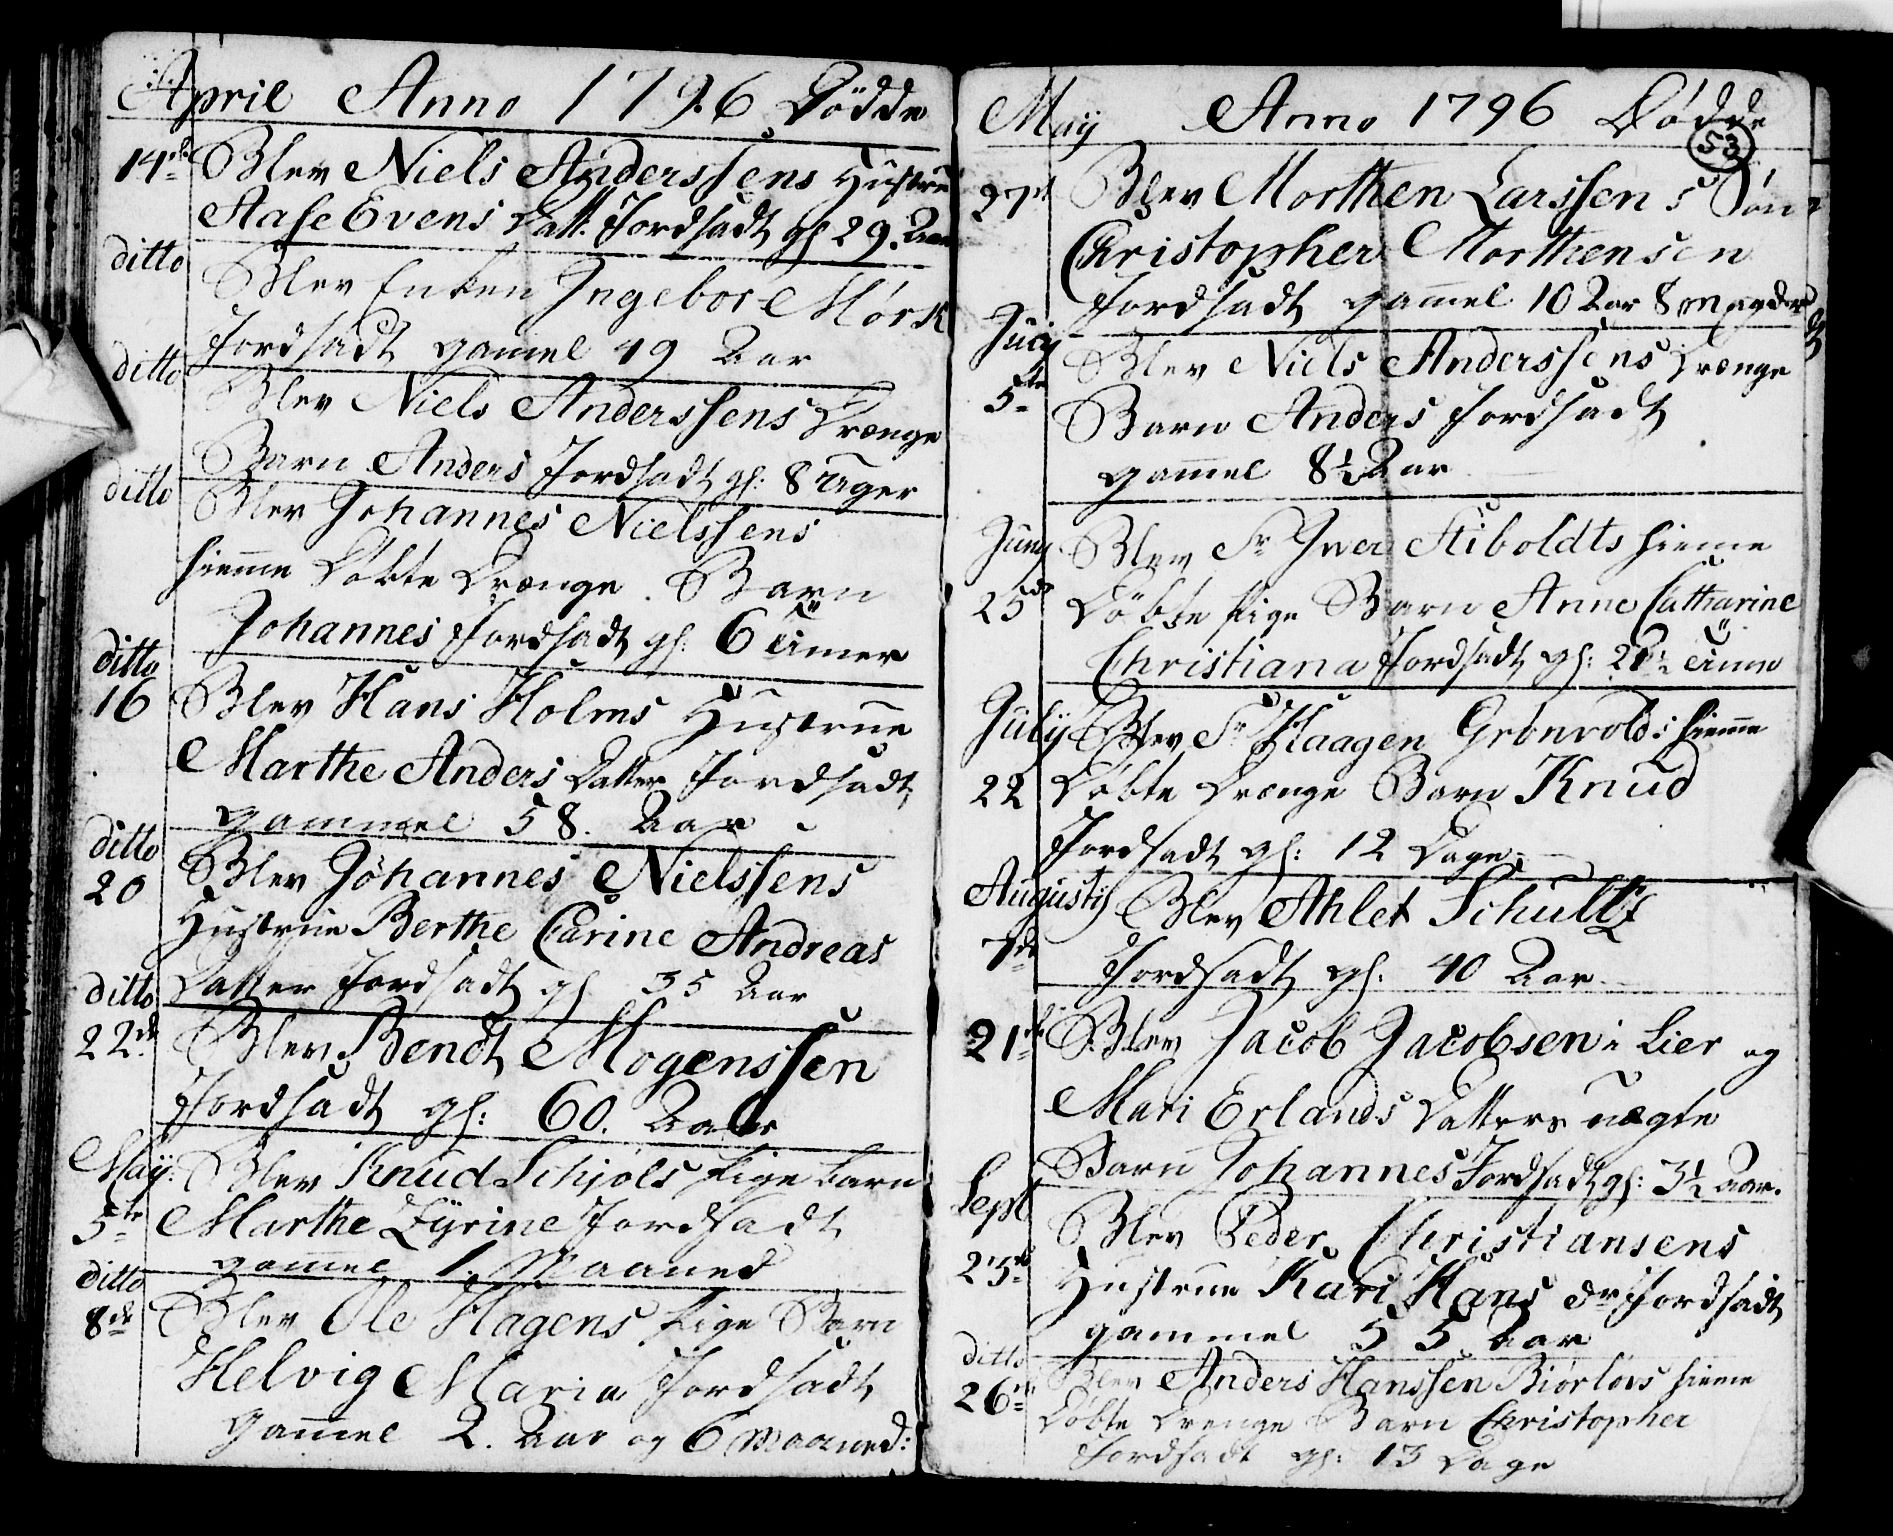 April Anno 1796 Dödde
14de Blev Niels Anderssens Hustrue
Aase Evens Datt. Jordsadt gl 29. Aar
ditto
Blev Enken Ingebor Mörk
Jordsadt gamel 49 Aar
ditto
Blev Niels Anderssens Drænge
Barn Anders Jordsadt gl: 8 Uger
ditto
Blev Johannes Nielssens
hieme Döbte Drænge Barn
Johannes Jordsadt gl: 6 Timer
ditto
16 Blev Hans Holms Hustrue
Marthe Anders Datter Jordsadt
gammel 58. Aar
ditto
20 Blev Johannes Nielssens
Hustrue Berthe Carine Andreas
Datter Jordsadt gl 35 Aar
ditto
22de Blev Bendt Mogenssen
Jordsadt gl: 60. Aar
Maÿ: Blev Knud Schjöls Pige Barn
5te Marthe Zÿrine Jordsadt
gamel 1. Maaned
ditto
8de Blev Ole Hagens Pige Barn
Helvig Maria Jordsadt
gammel 2. Aar og 6 Maaned:
Maÿ Anno 1796 Dödde
53
27de Blev Morthen Larssens Sön
Christopher Morthensen
Jordsadt gammel 10 Aar 8 Magder
Juny
5te Blev Niels Anderssens Drænge
Barn Anders Jordsadt
gammel 8½ Aar
Juny Blev Sr Iver Stiboldts hieme
25de Döbte Pige Barn Anne Catharine
Christiana Jordsadt gl: Time
Julÿ Blev Sr Haagen Grönvolds hieme
22 Döbte Drænge Barn Knud
Jordsadt gl: 12 Dage
Augustÿ Blev Ahlet Schultz
7de Jordsadt gl: 40 Aar
21de Blev Jacob Jacobsen i Lier og
Mari Erlands Datters uægte
Barn Johannes Jordsadt gl: 3½ Aar.
Sept Blev Peder Christiansens
23de Hustrue Kari Hans Dr Jordsadt
gammel 55 Aar
ditto
26de Blev Anders Hanssen Biörlövs hieme
Döbte Drenge Barn Christopher
Jordsadt gl: 13 Dage